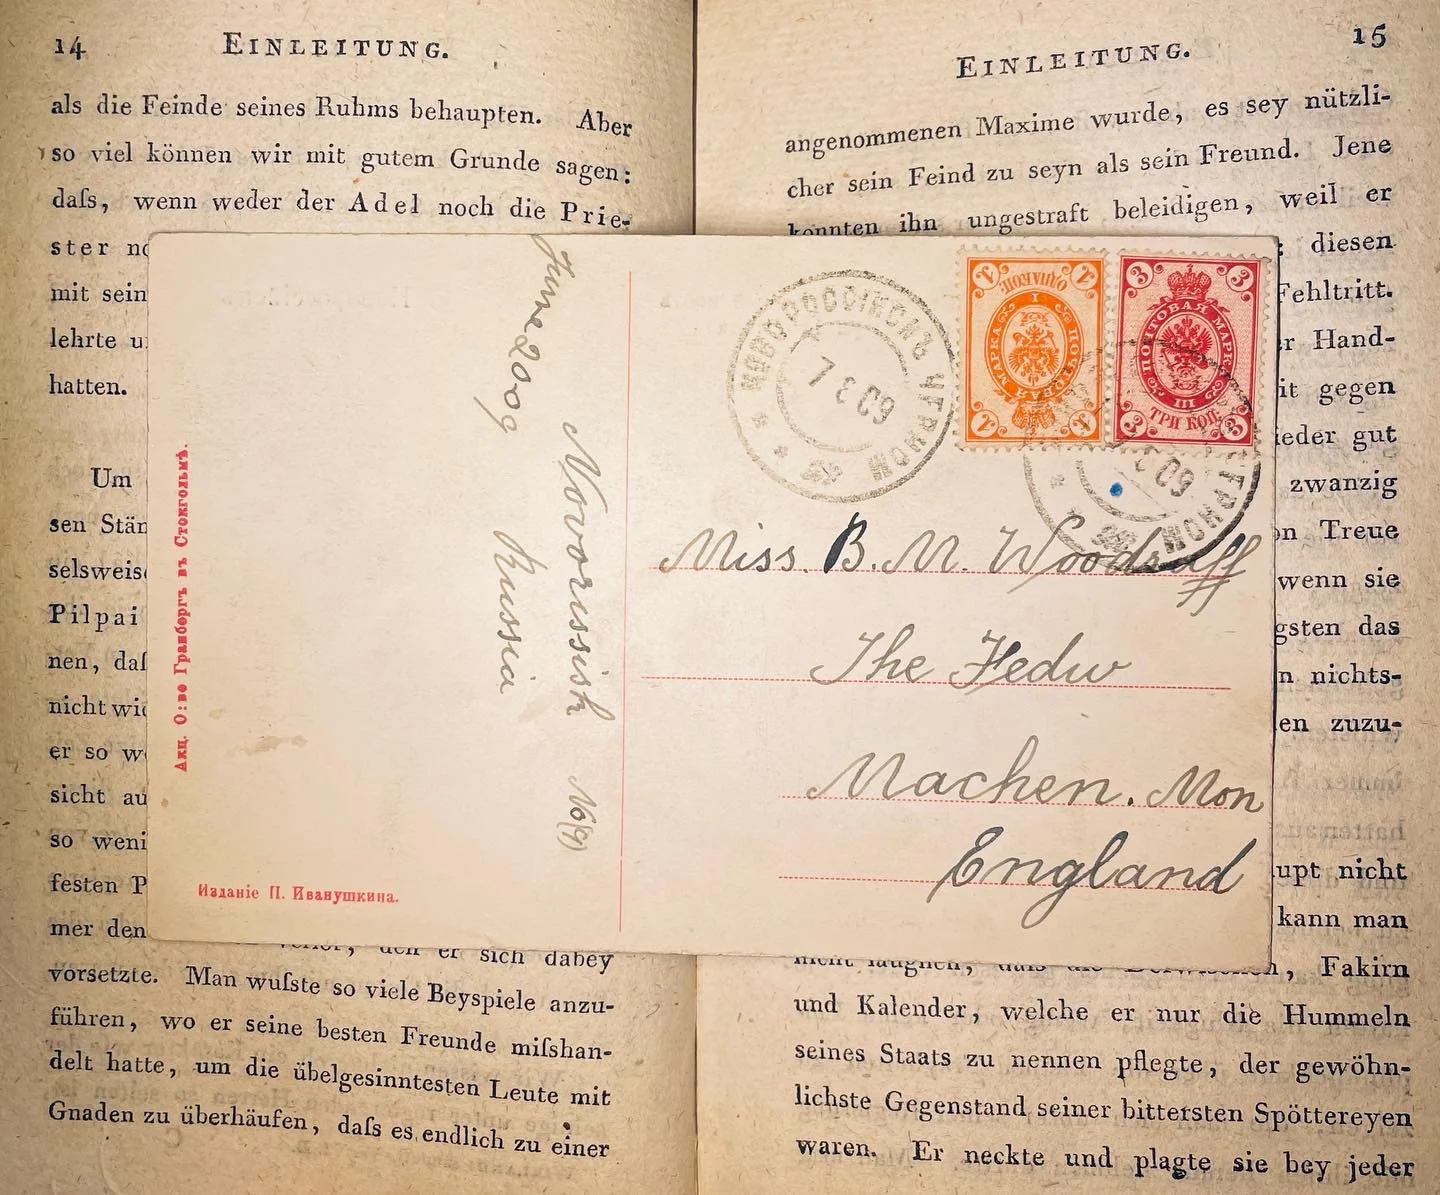 14 EINLEITUNG.
als die Feinde seines Ruhms behaupten. Aber
so viel können wir mit gutem Grunde sagen:
daſs, wenn weder der Adel noch die Prie-
ster
mit sein
lehrte
hatten.
Um
sen Stän
selsweise
Pilpai
nen, daſ
nicht
er so
sicht au
so weni
festen P
mer den
den er sich dabey
vorsetzte. Man wuſste so viele Beyspiele anzu-
führen, wo er seine besten Freunde miſshan-
delt hatte, um die übelgesinntesten Leute mit
Gnaden zu überhäufen, daſs es endlich zu einer
EINLEITUNG. 15
angenommenen Maxime wurde, es sey nützli-
cher sein Feind zu seyn als sein Freund. Jene
konnten ihn ungestraft beleidigen, weil er
diesen
Fehltritt.
Hand-
gegen
ieder gut
zwanzig
Treue
wenn sie
gsten das
nichts-
zuzu-
upt nicht
kann man
Fakirn
und Kalender, welche er nur die Hummeln
seines Staats zu nennen pflegte, der gewöhn-
lichste Gegenstand seiner bittersten Spöttereyen
waren. Er neckte und plagte sie bey jeder
Акц. О:во Гранбергъ въ Стокгольмѣ.
Изданіе П. Иванушкина.
June 20 09
Novorissisk No(9)
Russia
НОВОРОССІЙСКЪ ЧЕРНОМ
7 6 09
1 ПОЧТОВАЯ МАРКА 1
1 1
3 ПОЧТОВАЯ МАРКА 3
III
3 ТРИ КОП. 3
ЧЕРНОМ
09
Miss. B. M. Woodruff
The Fedw
Machen. Mon
England